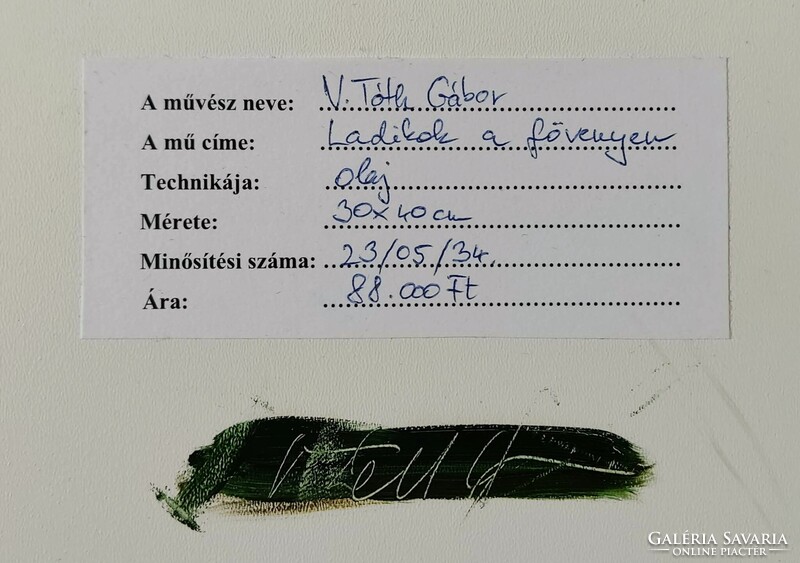 A művész neve: V. Tóth Gábor
A mű címe: Ladikok a fövenyen
Technikája: olaj
Mérete: 30x40 cm
Minősítési száma: 23/05/34.
Ára: 88.000 Ft
GALÉRIA SAVARIA
ONLINE PIACTÉR